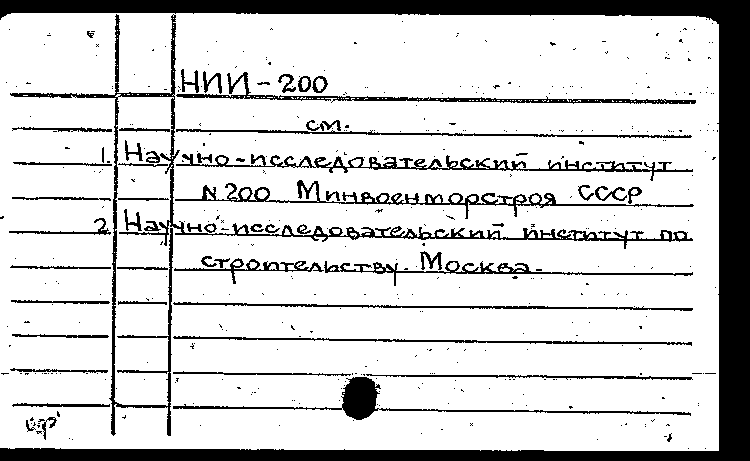 НИИ-200
см.
1. Научно-исследовательский институт
N 200 Минвоенморстроя СССР
2. Научно-исследовательский институт по
строительству. Москва.